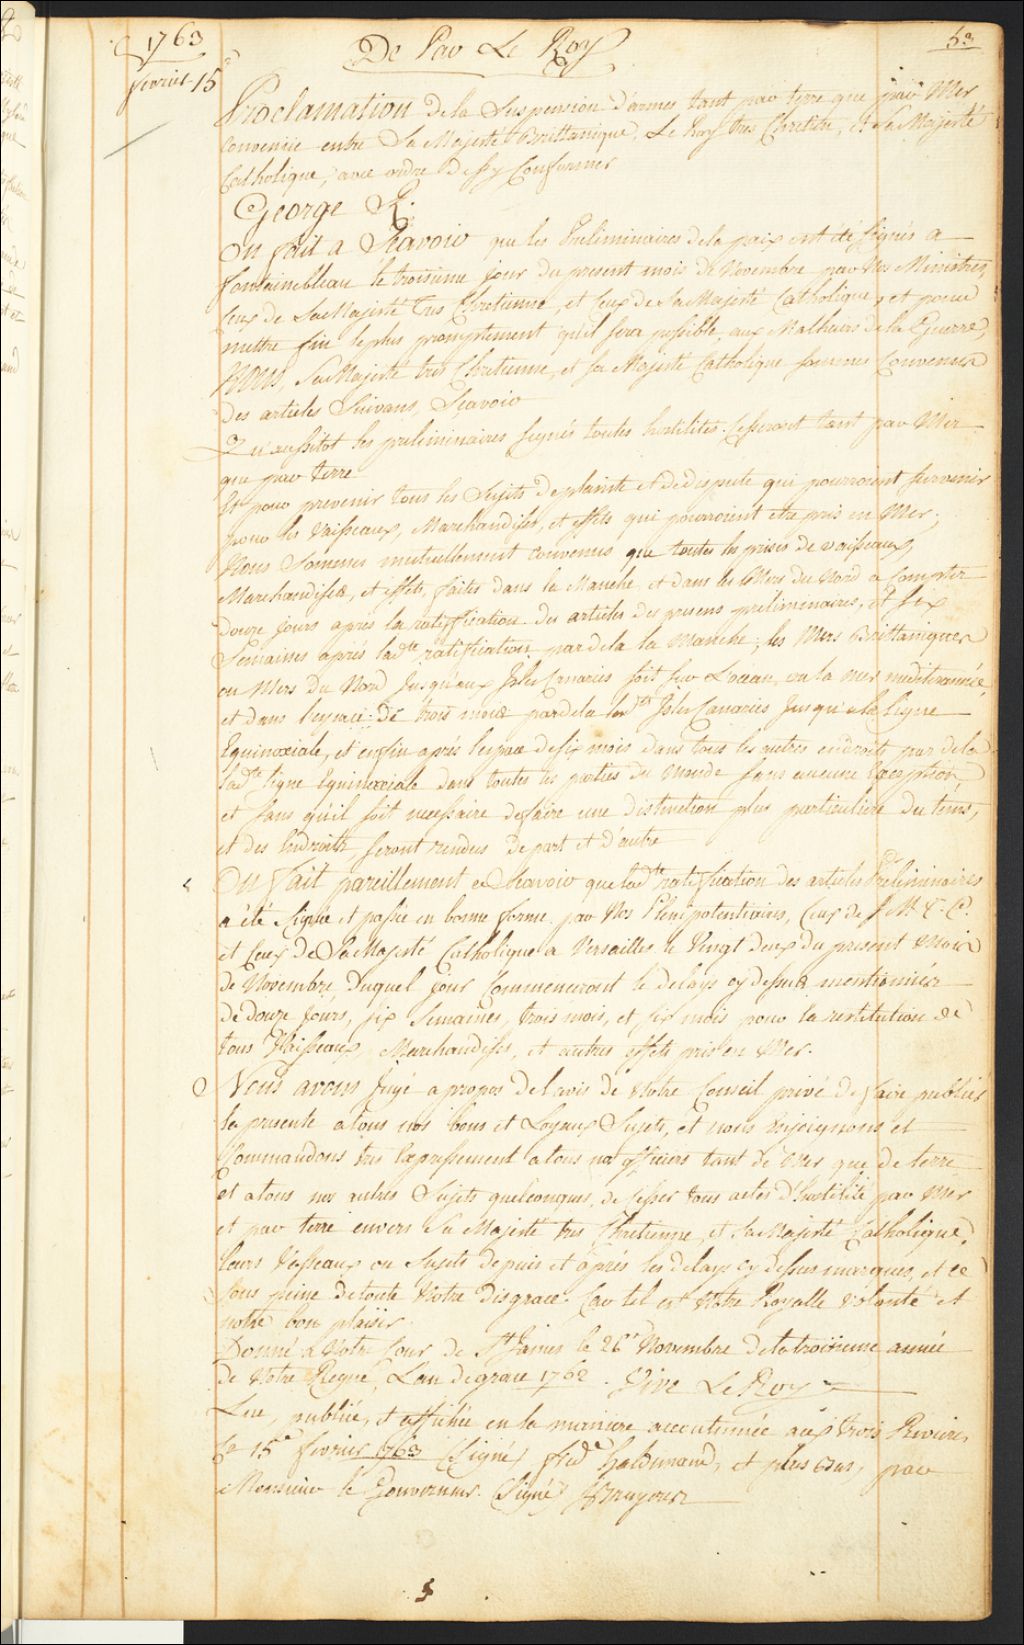 1763
De Par Le Roy
53
fevrier 15
Proclamation de la Suspension d'armes tant par terre que par Mer
Convenüe entre Sa Majesté Brittanique, Le Roy tres Chretien, et Sa Majesté
Catholique, avec ordre de s'y Conformer
George R.
On fait a Scavoir que les Preliminaires de la paix ont été signés a
fontainebleau le troisieme jour du present mois de Novembre par Nos Ministres,
Ceux de Sa Majesté Tres Chretienne, et Ceux de Sa Majesté Catholique, et pour
mettre fin le plus promptement qu'il sera possible, aux Malheurs de la Guerre,
Nous, Sa Majesté tres Chretienne, et sa Majesté Catholique sommes Convenus
des articles Suivans, Scavoir
Qu'aussitot les preliminaires signés toutes hostilités Cesseront tant par Mer
que par terre
Et pour prevenir tous les Sujets de plainte et de dispute qui pourroient survenir
pour les Vaisseaux, Marchandises, et effets qui pourroient etre pris en Mer;
Nous Sommes mutuellement convenus que toutes les prises de vaisseaux,
Marchandises, et effets, faites dans la Manche et dans les Mers du Nord a Compter
douze jours aprés la ratiffication des articles des presens preliminaires, et six
Semaines aprés lad.te ratiffication par dela la Manche, les Mers Brittaniques
ou Mers du Nord Jusqu'aux Isles Canaries soit sur L'ocean, ou la mer mediteranneé
et dans l'espace de trois mois par dela les d.tes Isles Canaries Jusqu'a la Ligne
Equinoxiale, et enfin aprés l'espace de six mois dans tous les autres endroits par dela
lad.te ligne Equinoxiale dans toutes les parties du Monde sans aucune Exception
et sans qu'il soit necessaire de faire une distinction plus particuliere du tems,
et des Endroits seront rendus de part et d'autre
On fait pareillement a Scavoir que lad.te ratiffication des articles Preliminaires
a été Signé et passée en bonne forme par Nos Plenipotentiaires, Ceux de S. M. T. C.
et Ceux de Sa Majesté Catholique a Versailles le Vingt deux du present Mois
de Novembre, Duquel jour Commenceront le delays cy dessus mentionnés
de douze jours, six Semaines, trois mois, et six mois pour la restitution de
tous Vaisseaux, Marchandises, et autres effets pris en Mer.
Nous avons Jugé a propos de l'avis de Notre Conseil privé de faire publier
la presente a tous nos bons et Loyaux Sujets, et nous Enjoignons et
Commandons tres Expressement a tous nos officiers tant de Mer que de terre
et a tous nos autres Sujets quelconques, de Cesser tous actes d'hostilité par Mer
et par terre envers Sa Majesté tres Chretienne, et Sa Majesté Catholique,
leurs Vasseaux ou Sujets depuis et aprés les delays cy dessus marqués, et ce
sous peine de toute Notre disgrace. Car tel est Notre Royalle Volonté et
notre bon plaisir.
Donné a Notre Cour de St. James le 26e Novembre de la troisieme année
de Notre Regne, L'an de grace 1762. Vive Le Roy
Lue, publiée, et affichée en la maniere accoutumée aux trois Rivieres
Le 15e fevrier 1763 (Signé) fred. Haldimand, et plus bas, par
Monsieur le Gouverneur. (Signé) Bruyeres